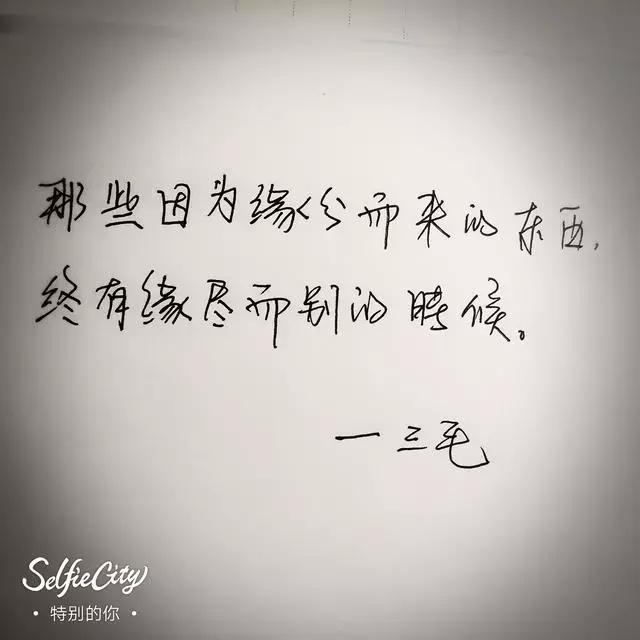 那些因为缘份而来的东西,
终有缘尽而别的时候。
—三毛
SelfieCity
·特别的你·